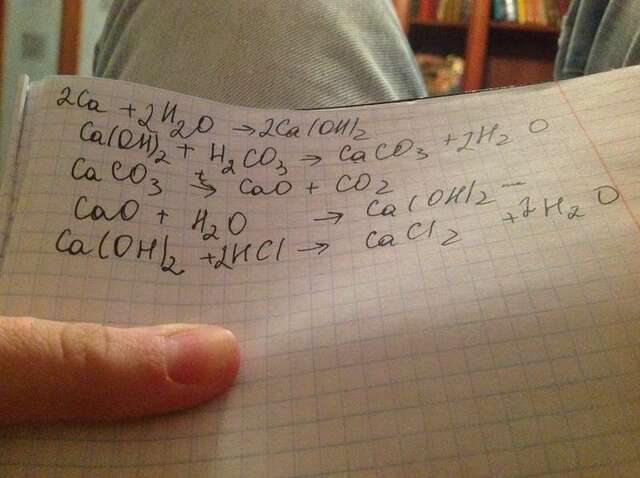 2Ca + 2H₂O → 2Ca(OH)₂
Ca(OH)₂ + H₂CO₃ → CaCO₃ + 2H₂O
CaCO₃ t→ CaO + CO₂
CaO + H₂O → Ca(OH)₂
Ca(OH)₂ + 2HCl → CaCl₂ + 2H₂O